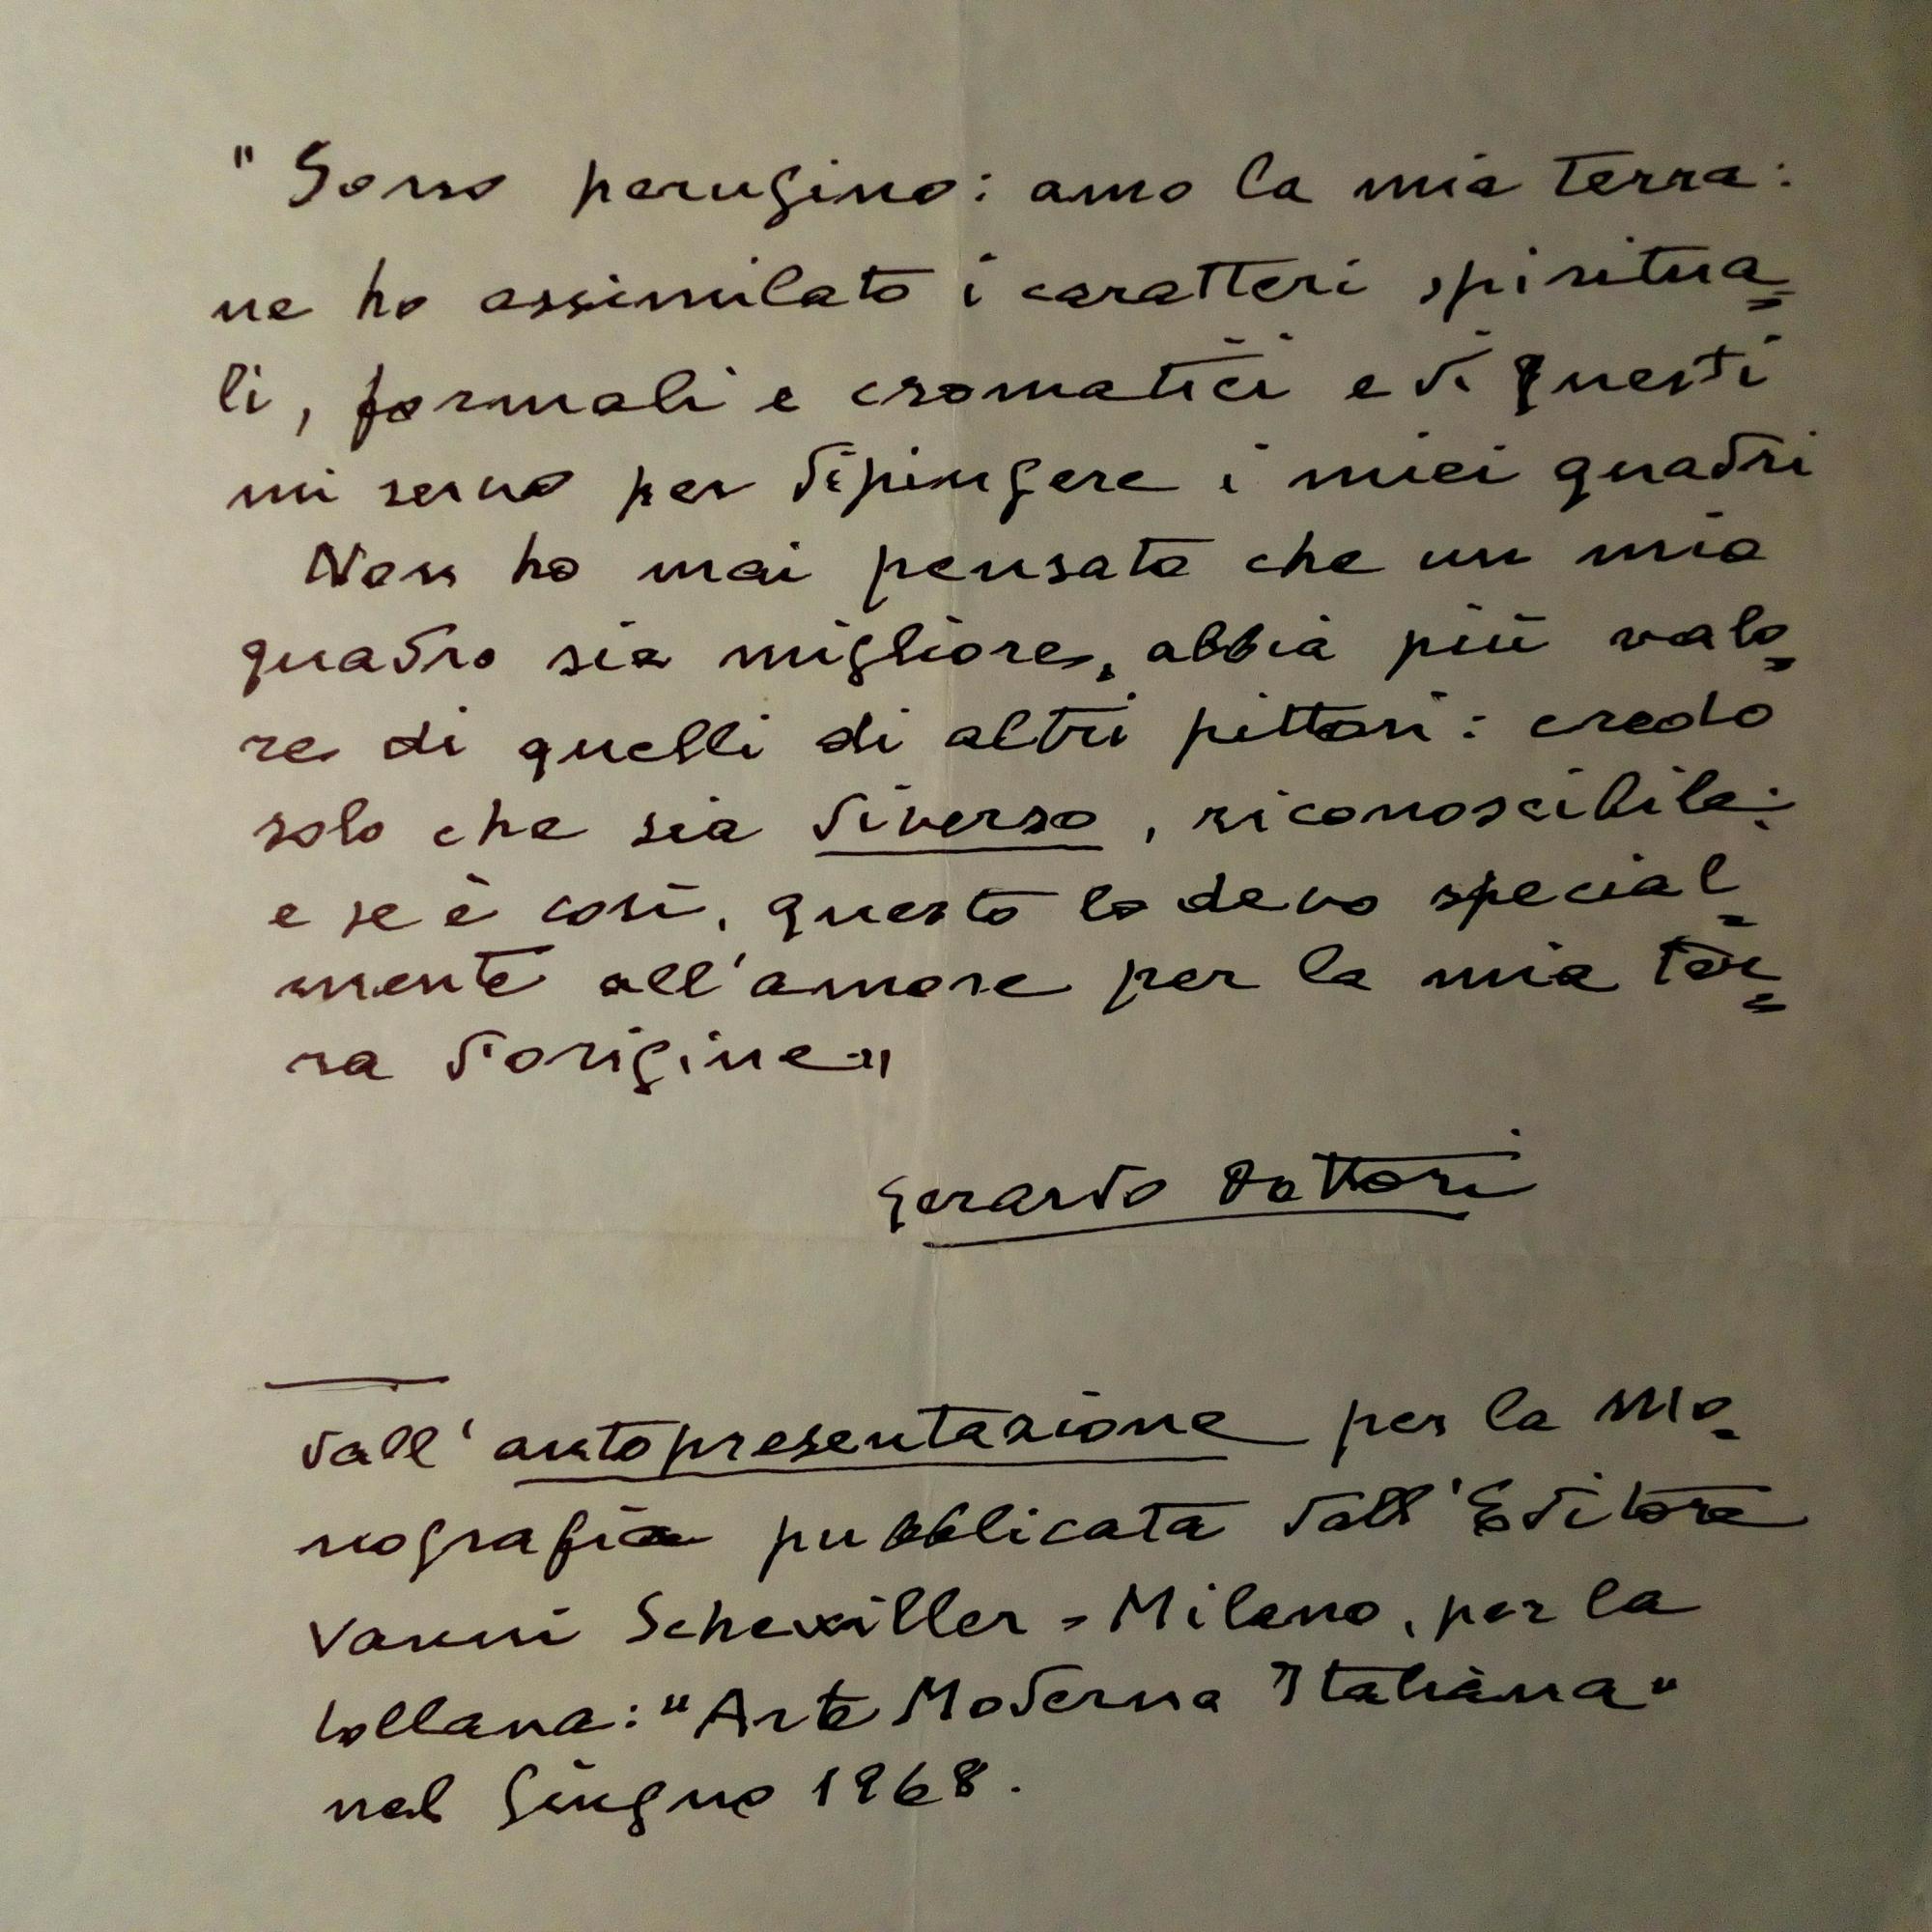 " Sono perugino: amo la mia terra:
ne ho assimilato i caratteri spiritua=
li, formali e cromatici e di questi
mi servo per dipingere i miei quadri
Non ho mai pensato che un mio
quadro sia migliore, abbia più valo=
re di quelli di altri pittori: credo
solo che sia diverso, riconoscibile:
e se è così, questo lo devo special=
mente all'amore per la mia ter=
ra d'origine"
Gerardo Dottori
dall'autopresentazione per la Mo=
nografia pubblicata dall'Editore
Vanni Scheiwiller - Milano, per la
Collana: "Arte Moderna Italiana"
nel Giugno 1968.